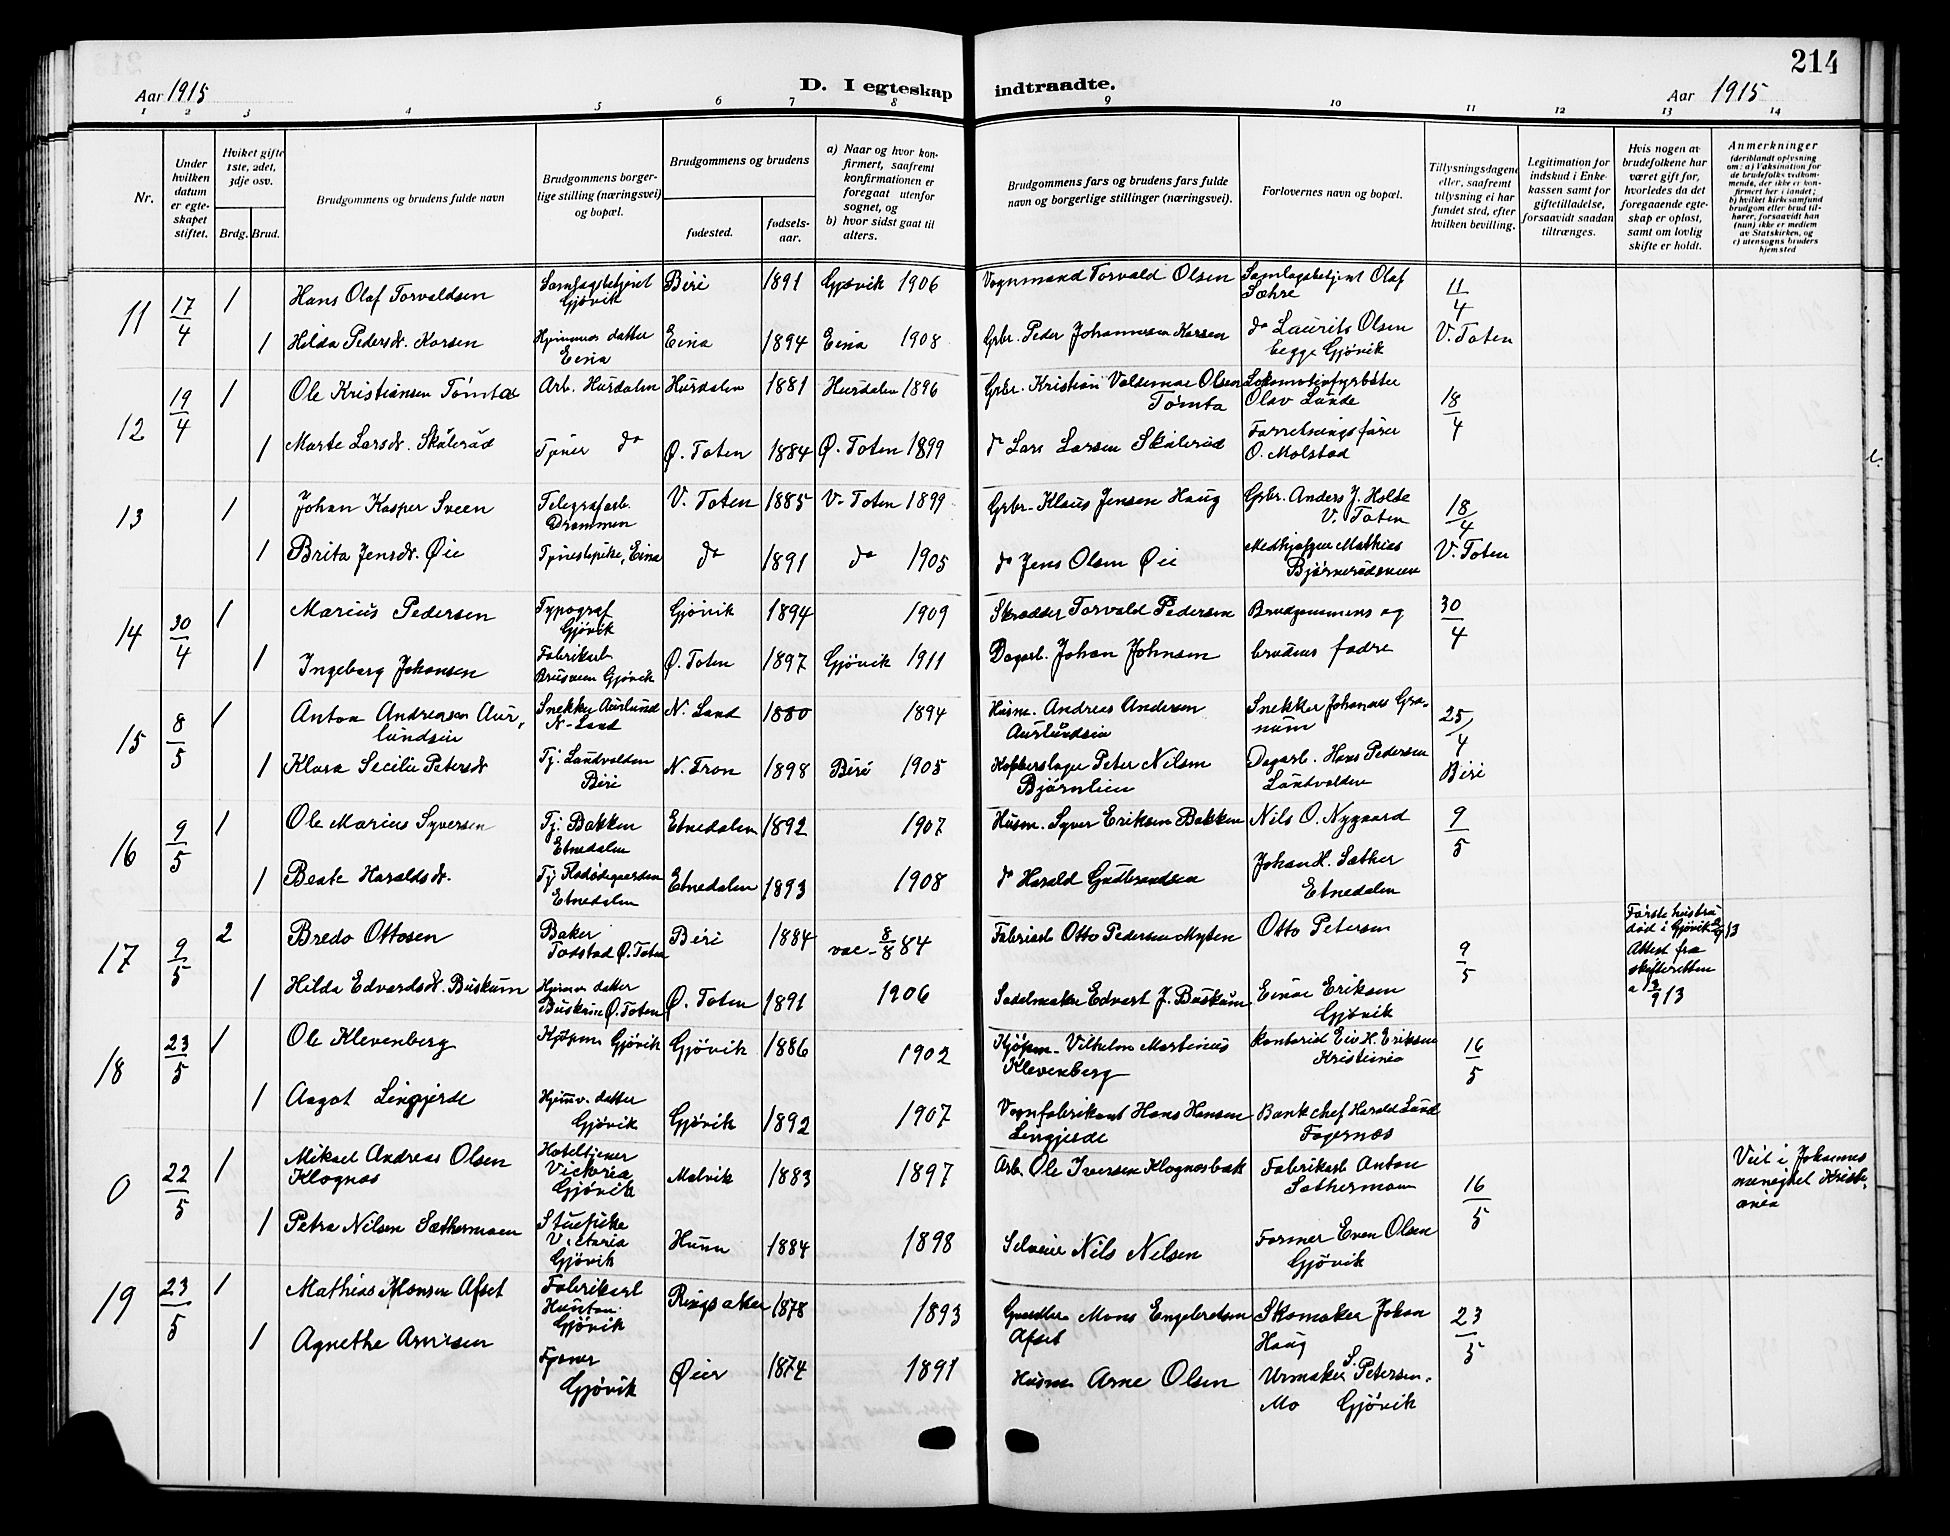 214
Aar 1915
D. I egteskap indtraadte.
Aar 1915
1 2 3 4 5 6 7 8 9 10 11 12 13 14
Nr.
Under hvilken datum er egteskapet stiftet.
Hviket gifte 1ste, 2det, 3dje osv.
Brdg. Brud.
Brudgommens og brudens fulde navn
Brudgommens borgerlige stilling (næringsvei) og bopæl.
Brudgommens og brudens
fødested.
fødselsaar.
a) Naar og hvor konfirmert, saafremt konfirmationen er foregaat utenfor sognet, og
b) hvor sidst gaat til alters.
Brudgommens fars og brudens fars fulde navn og borgerlige stillinger (næringsvei).
Forlovernes navn og bopæl.
Tillysningsdagene eller, saafremt tillysning ei har fundet sted, efter hvilken bevilling.
Legitimation for indskud i Enkekassen samt for giftetilladelse, forsaavidt saadan tiltrænges.
Hvis nogen av brudefolkene har været gift før, hvorledes da det foregaaende egteskap er opløst, samt om lovlig skifte er holdt.
Anmerkninger
(deriblandt oplysning om: a) Vaksination for de brudefolks vedkommende, der ikke er konfirmert her i landet; b) hvilket kirkesamfund brudgom eller brud tilhører, forsaavidt han (hun) ikke er medlem av Statskirken, og c) utensogns bruders hjemsted
11 17/4 1 Hans Olaf Torvaldsen Samlagsbetjent Gjøvik Biri 1891 Gjøvik 1906 Vognmand Torvald Olsen Samlagsbetjent Olaf Sæhre 11/4
1 Hilda Pedersdr. Korsen Hjemmev. datter Eina Eina 1894 Eina 1908 Grbr. Peder Johannesen Korsen do Laurits Olsen begge Gjøvik V. Toten
12 19/4 1 Ole Kristiansen Tømta Arb. Hurdalen Hurdalen 1881 Hurdalen 1896 Grbr. Kristian Valdemar Olsen Tømta Lokomotivfyrbøter Olav Lunde 18/4
1 Marte Larsdr. Skålerud Tjener do Ø. Toten 1884 Ø. Toten 1899 do Lars Larsen Skålerud Forretningsfører O. Molstad
13 1 Johan Kasper Sveen Telegrafarb. Drammen V. Toten 1885 V. Toten 1899 Grbr. Klaus Jensen Haug Grbr. Anders J. Holte V. Toten 18/4
1 Brita Jensdr. Øie Tjenestepike, Eina do 1891 do 1905 do Jens Olsen Øie Medhjælper Mathias V. Toten
14 30/4 1 Marius Pedersen Typograf Gjøvik Gjøvik 1894 1909 Skrædder Torvald Pedersen Brudgommens og 30/4
1 Ingeborg Johansen Fabrikarb. Gjøvik Ø. Toten 1897 Gjøvik 1911 Dagarb. Johan Johnsen brudens fædre
15 8/5 1 Anton Andreasen Aurlundsin Snekker Aurlund N. Land N. Land 1880 1894 Husm. Andreas Andersen Aurlundsin Snekker Johannes Granum 25/4
1 Klara Secilie Petersdr Tj. Landvolden Biri N. Fron 1898 Biri 1905 Kopperslager Peter Nilsen Bjørnlien Dagarb. Hans Pedersen Landvolden Biri
16 9/5 1 Ole Marius Syversen Tj. Bakken Etnedalen Etnedalen 1892 1907 Husm. Syver Eriksen Bakken Nils O. Nygaard 9/5
1 Beate Haraldsdr. Tj. Etnedalen Etnedalen 1893 1908 do Harald Gudbrandsen Johan H. Sæther Etnedalen
17 9/5 2 Bredo Ottosen Baker Todstad Ø. Toten Biri 1884 vac. 8/8 84 Fabrikarb Otto Pedersen Myhen Otto Petersen 9/5 Første hustru død i Gjøvik 13 Attest fra skifteretten a 3/9 13
1 Hilda Edvardsdr. Buskum Hjemmev. datter Buskum Ø. Toten Ø. Toten 1891 1906 Sadelmaker Edvart J. Buskum Einar Eriksen Gjøvik
18 23/5 1 Ole Klevenberg Kjøpm. Gjøvik Gjøvik 1886 1902 Kjøpm. Vilhelm Martinius Klevenberg Kontorist Eiv H. Eriksen Kristiania 16/5
1 Aagot Lingjerde Hjemmev. datter Gjøvik Gjøvik 1892 1907 Vognfabrikant Hans Hansen Lingjerde Bankchef Harald Lund Fagernæs
0 22/5 1 Mikael Andreas Olsen Klognæs Hoteltjener Victoria Gjøvik Malvik 1883 1897 Arb. Ole Iversen Klognæsbak Fabrikarb Anton Sæthermoen 16/5 Viet i Johannes menighet Kristiania
1 Petra Nilsen Sæthermoen Stuepike Victoria Gjøvik Hunn 1884 1898 Selveier Nils Nilsen Former Even Olsen Gjøvik
19 23/5 1 Mathias Monsen Afset Fabrikarb Hunton Gjøvik Ringsaker 1878 1893 Mons Engebretsen Afset Skomaker Johan Haug 23/5
1 Agnethe Arnesen Tjener Gjøvik Øier 1874 1891 Husm Arne Olsen Urmaker S. Petersen Mo Gjøvik